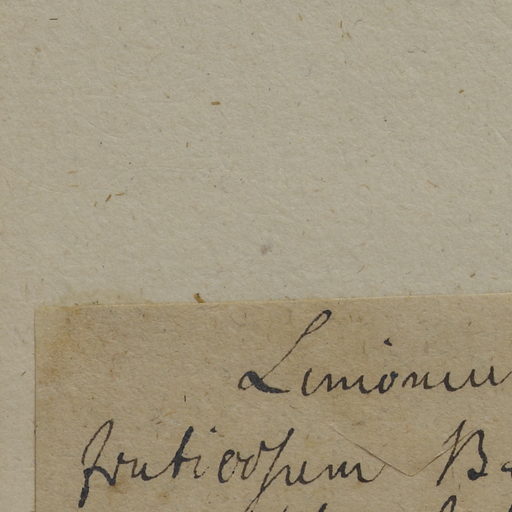 Limoniu
fruticosum Ba